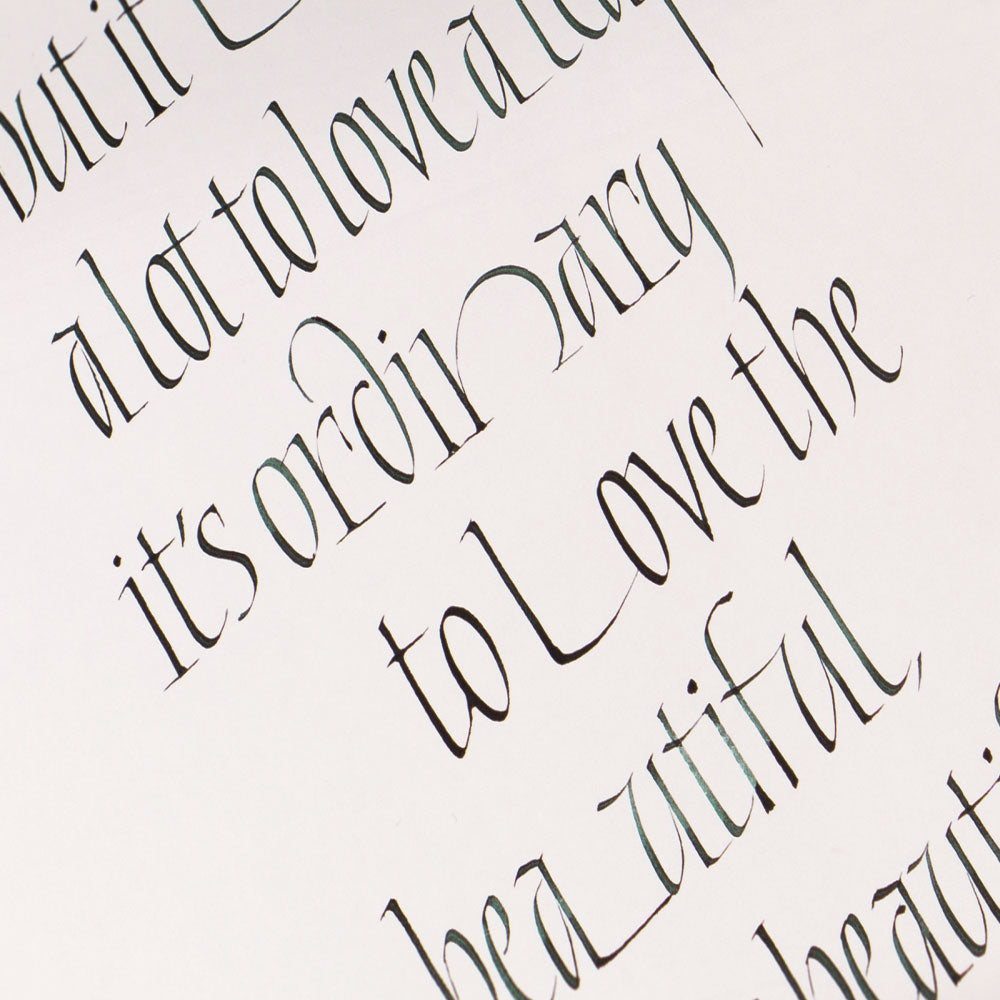 but it
a lot to love a
it's ordinary
to Love the
beautiful,